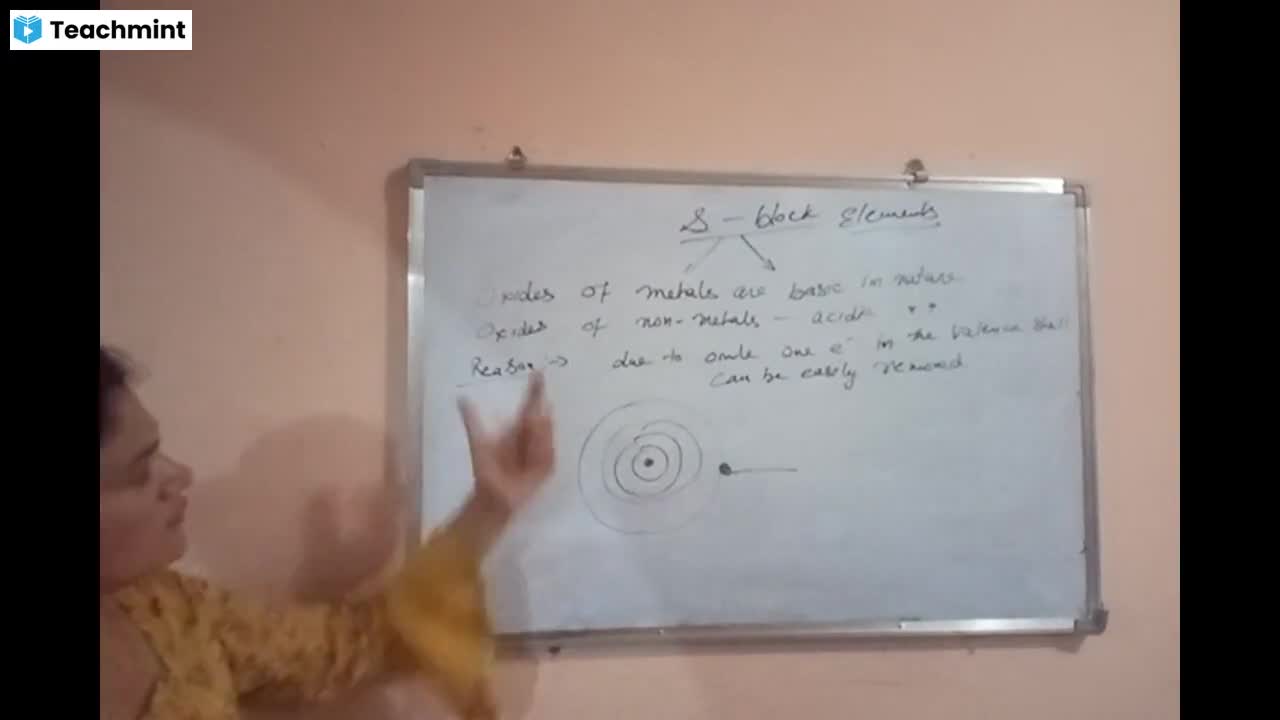 Teachmint
S - block Elements
Oxides of metals are basic in nature
Oxides of non-metals - acidic " "
Reason :-> due to only one e- in the valence shell
can be easily removed